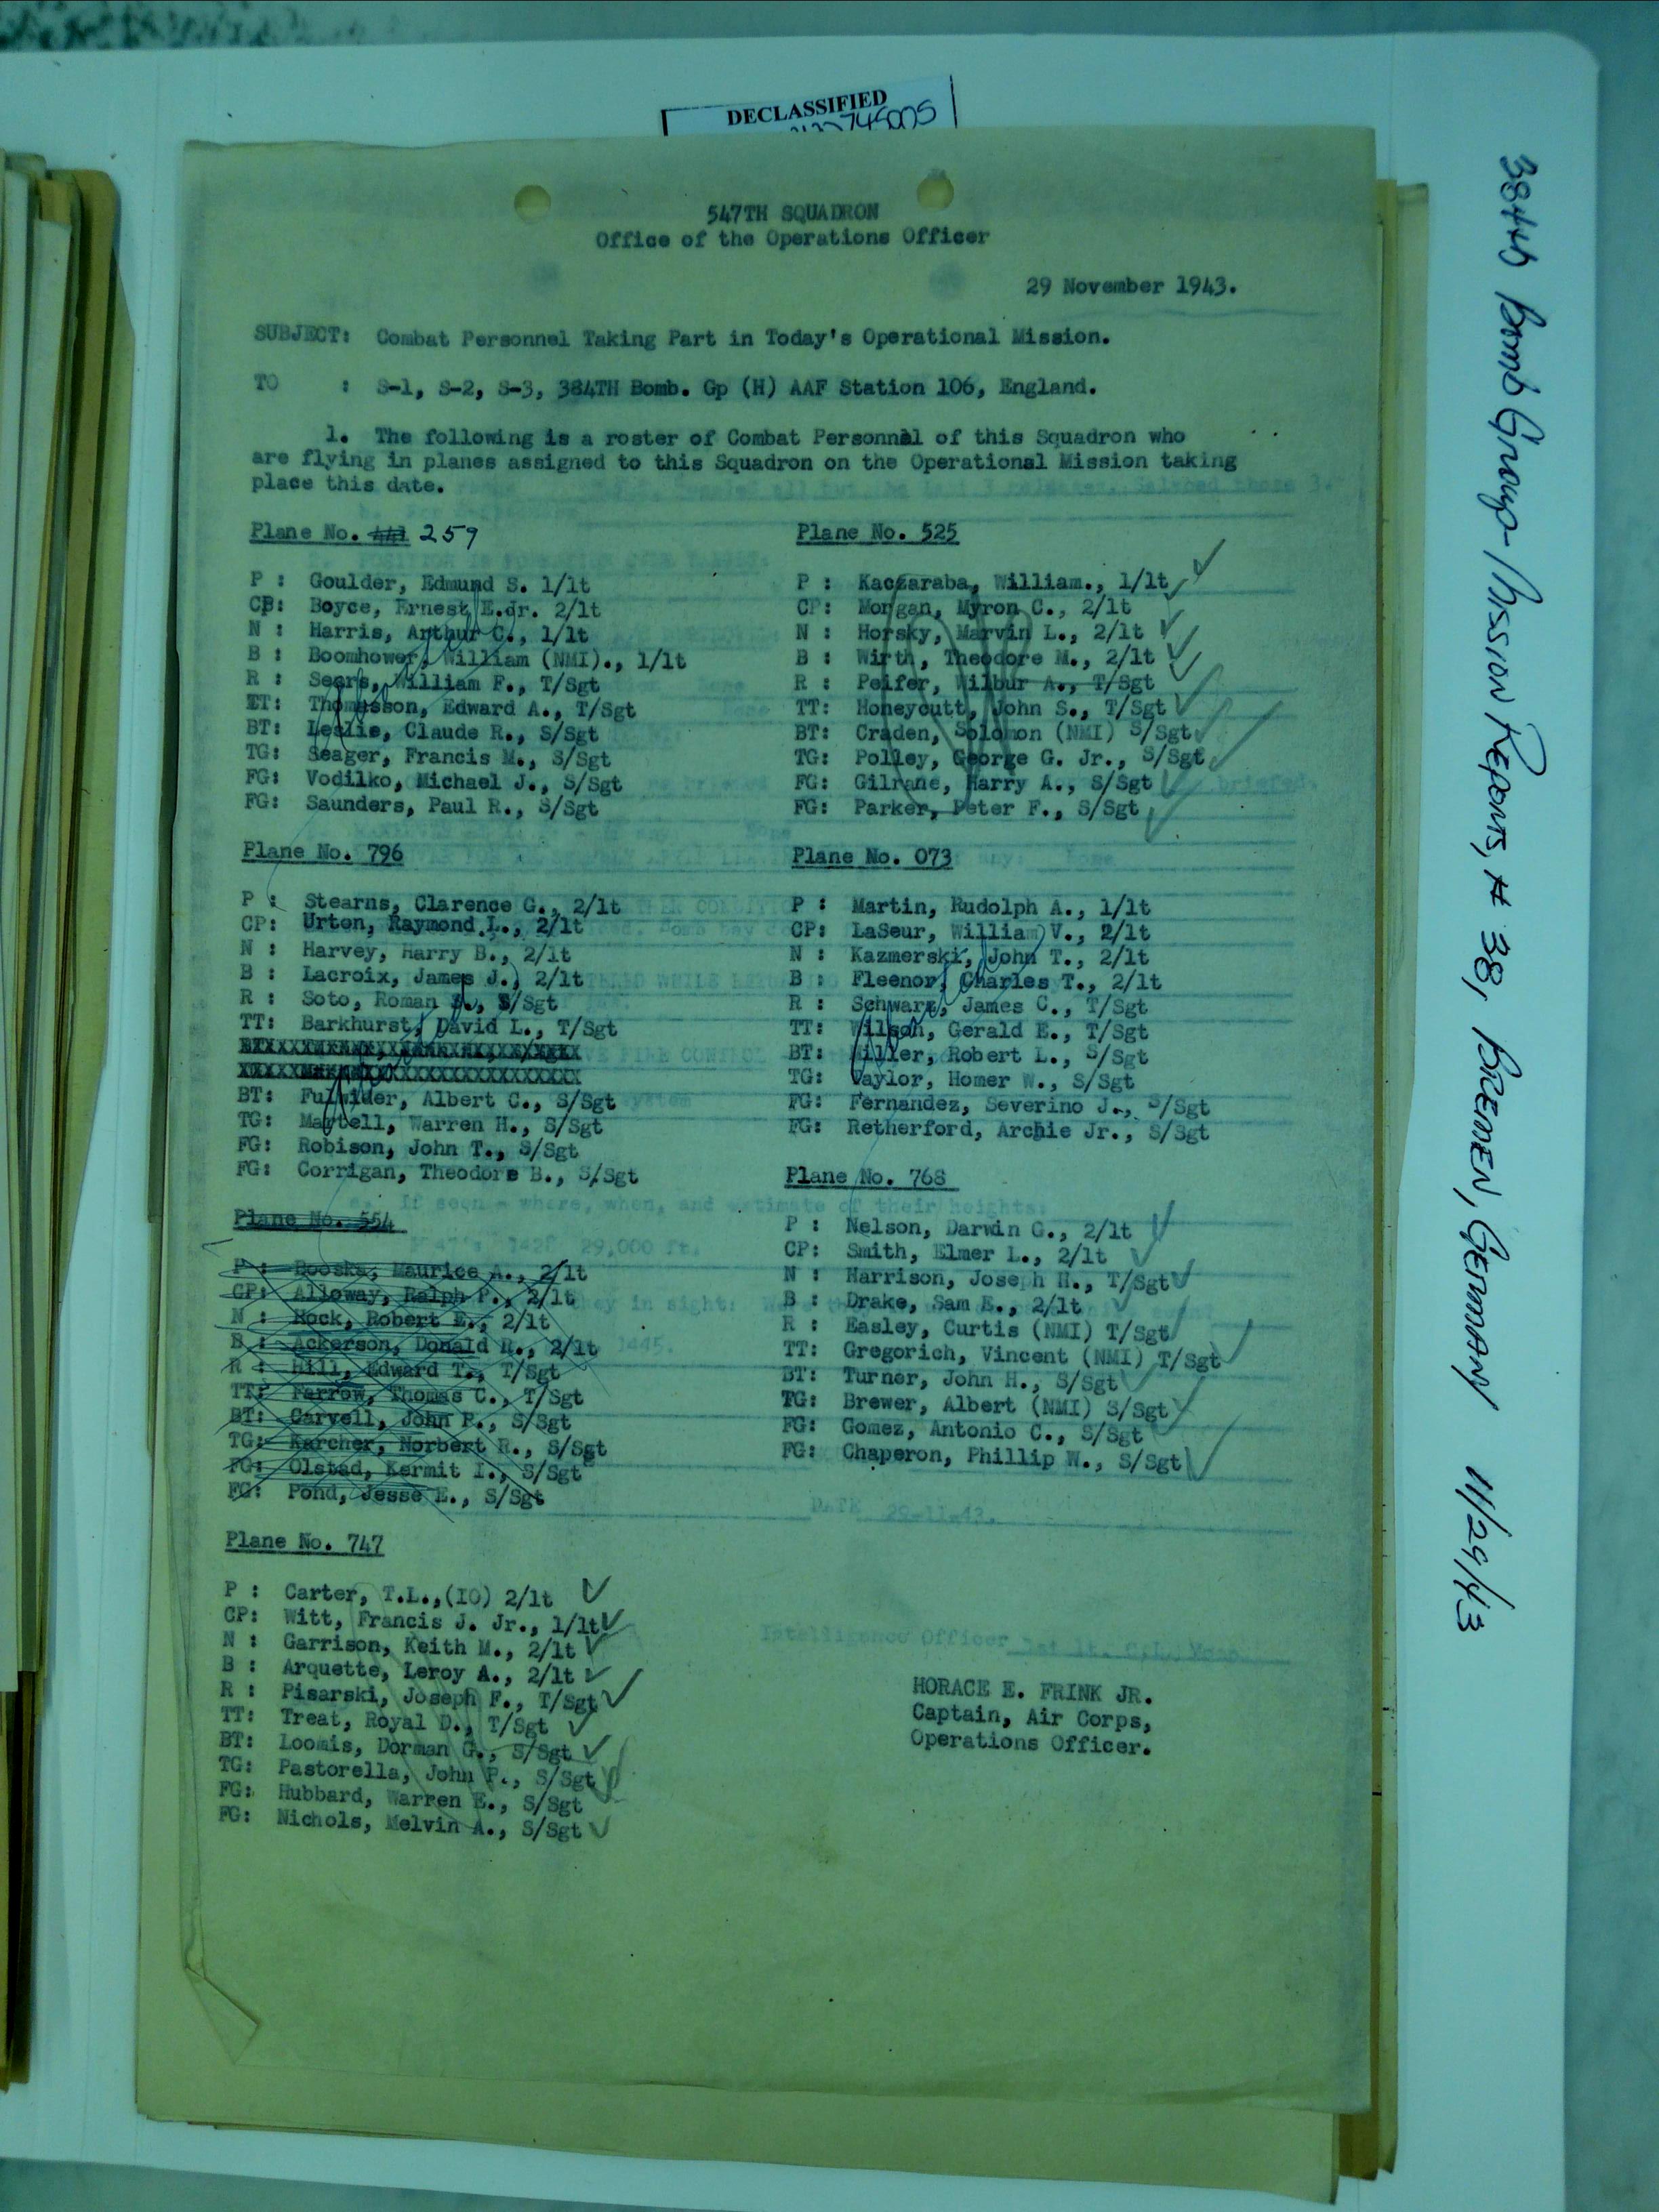 DECLASSIFIED
745005
547TH SQUADRON
Office of the Operations Officer
29 November 1943.
SUBJECT: Combat Personnel Taking Part in Today's Operational Mission.
TO : S-1, S-2, S-3, 384TH Bomb. Gp (H) AAF Station 106, England.
1. The following is a roster of Combat Personnal of this Squadron who
are flying in planes assigned to this Squadron on the Operational Mission taking
place this date.
Plane No. 441 259
P : Goulder, Edmund S. 1/lt
CP: Boyce, Ernest E.Jr. 2/lt
N : Harris, Arthur C., 1/lt
B : Boomhower, William (NMI)., 1/lt
R : Sears, William F., T/Sgt
TT: Thomasson, Edward A., T/Sgt
BT: Leslie, Claude R., S/Sgt
TG: Seager, Francis M., S/Sgt
FG: Vodilko, Michael J., S/Sgt
FG: Saunders, Paul R., S/Sgt
Plane No. 525
P : Kaczaraba, William., 1/lt
CP: Morgan, Myron C., 2/lt
N : Horsky, Marvin L., 2/lt
B : Wirth, Theodore M., 2/lt
R : Peifer, Wilbur A., T/Sgt
TT: Honeycutt, John S., T/Sgt
BT: Craden, Solomon (NMI) S/Sgt
TG: Polley, George G. Jr., S/Sgt
FG: Gilrane, Harry A., S/Sgt
FG: Parker, Peter F., S/Sgt
Plane No. 796
P : Stearns, Clarence G., 2/lt
CP: Urton, Raymond L., 2/lt
N : Harvey, Harry B., 2/lt
B : Lacroix, James J., 2/lt
R : Soto, Roman S/Sgt
TT: Barkhurst, David L., T/Sgt
BT: Fulwider, Albert C., S/Sgt
TG: Martell, Warren H., S/Sgt
FG: Robison, John T., S/Sgt
FG: Corrigan, Theodore B., S/Sgt
Plane No. 073
P : Martin, Rudolph A., 1/lt
CP: LaSeur, William V., 2/lt
N : Kazmerski, John T., 2/lt
B : Fleenor, Charles T., 2/lt
R : Schwarz, James C., T/Sgt
TT: Wilson, Gerald E., T/Sgt
BT: Miller, Robert L., S/Sgt
TG: Taylor, Homer W., S/Sgt
FG: Fernandez, Severino J., S/Sgt
FG: Retherford, Archie Jr., S/Sgt
Plane No. 554
P : Booska, Maurice A., 2/lt
CP: Alloway, Ralph P., 2/lt
N : Rock, Robert E., 2/lt
B : Ackerson, Donald R., 2/lt
R : Hill, Edward T., T/Sgt
TT: Farrow, Thomas C., T/Sgt
BT: Caryell, John P., S/Sgt
TG: Karcher, Norbert R., S/Sgt
FG: Olstad, Kermit I., S/Sgt
FG: Pond, Jesse E., S/Sgt
Plane No. 768
P : Nelson, Darwin G., 2/lt
CP: Smith, Elmer L., 2/lt
N : Harrison, Joseph H., T/Sgt
B : Drake, Sam E., 2/lt
R : Easley, Curtis (NMI) T/Sgt
TT: Gregorich, Vincent (NMI) T/Sgt
BT: Turner, John H., S/Sgt
TG: Brewer, Albert (NMI) S/Sgt
FG: Gomez, Antonio C., S/Sgt
FG: Chaperon, Phillip W., S/Sgt
DATE 29-11-43.
Plane No. 747
P : Carter, T.L.,(IO) 2/lt
CP: Witt, Francis J. Jr., 1/lt
N : Garrison, Keith M., 2/lt
B : Arquette, Leroy A., 2/lt
R : Pisarski, Joseph F., T/Sgt
TT: Treat, Royal D., T/Sgt
BT: Loomis, Dorman G., S/Sgt
TG: Pastorella, John P., S/Sgt
FG: Hubbard, Warren E., S/Sgt
FG: Nichols, Melvin A., S/Sgt
Intelligence Officer 1st Lt.
HORACE E. FRINK JR.
Captain, Air Corps,
Operations Officer.
384th Bomb Group - Mission Reports, # 38, BREMEN, GERMANY 11/29/43